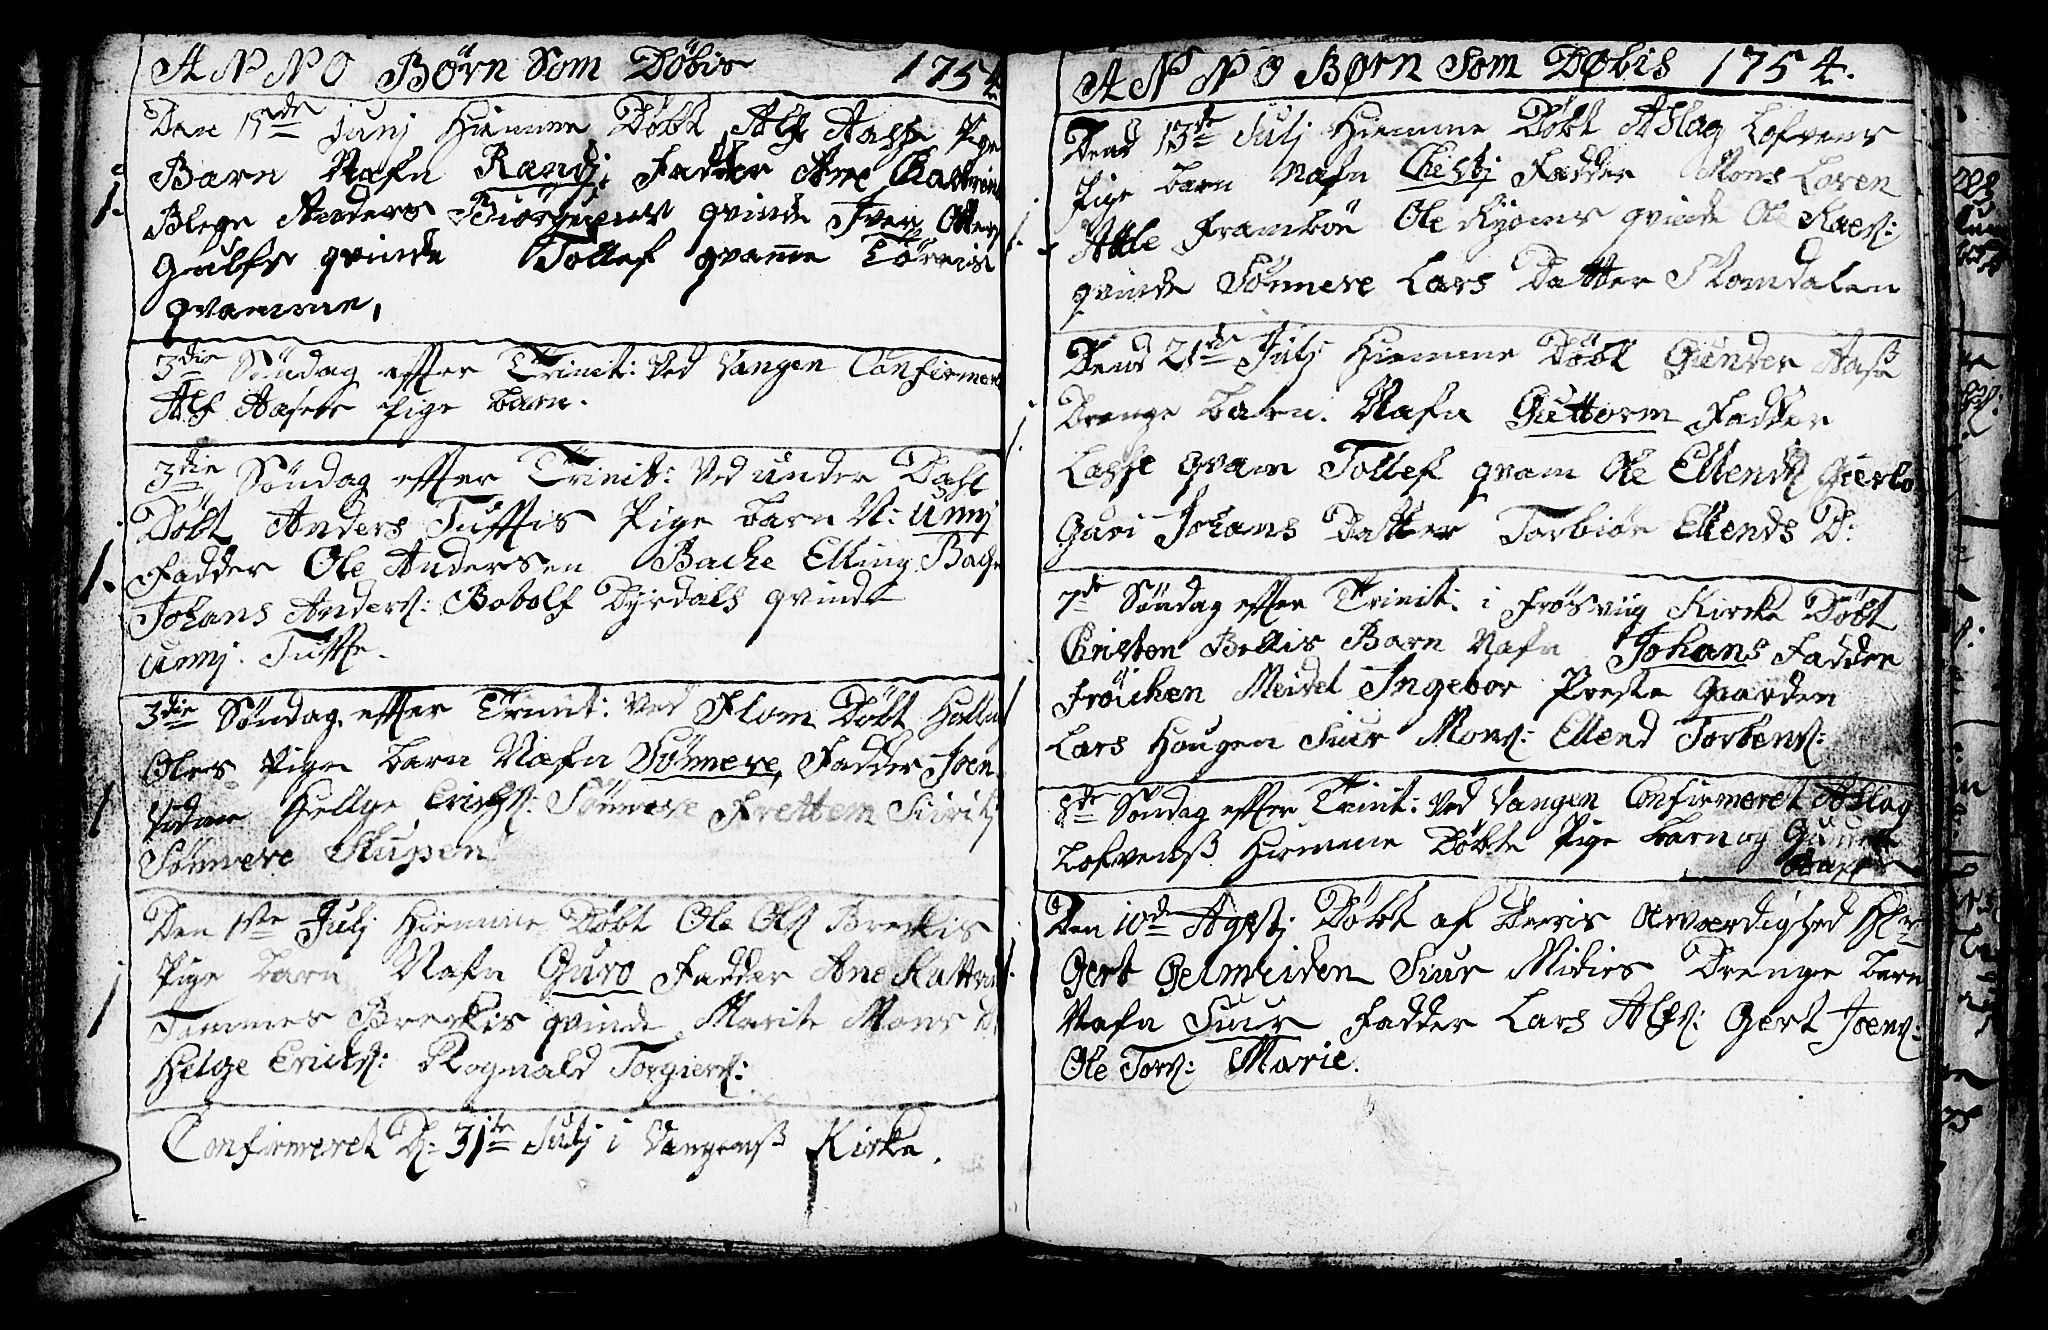 ANNO Børn Som Döbis 1754
Den 15de Junj Hiemme Döbt Alf Aasse Pige
Barn Nafn Randj, Fadder Ane Chattrine
Blege Anders Biørgums qvinde Iver Otters
Gulfs qvinde Tollef qvamme Törris
qvamme,
3die Söndag efter Trinit: Ved Vangen Confirmeret
Alf Aasets Pige barn.
3die Söndag efter Trinit: Ved under Dahl
Döbt Anders Tuftis Pige barn N: Unnj
Fadder Ole Andersen Bache Elling Bache
Johans Anders: Bobolf Dyrdals qvinde
Unnj Tufte.
3die Söndag efter Trinit: Ved Flom Döbt
Oles Pige barn Nafn Sönneve, Fadder Joen
Vidme Hellge Erichs: Sönneve Frettem Siritj
Sönneve Stupen
Den 1ste Julj Hiemme Döbt Ole Ols Breckis
Pige barn Nafn Guro Fadder Ane Kattrine
Simmes Breckis qvinde Marite Mons D:
Helge Ericks: Rognald Torgiers:
Confirmeret D: 31te Julj i Vangens Kircke.
ANNO Børn Som Døbis 1754.
Dend 13de Julj Hiemme Döbt Aslag Lofvens
Pige barn Nafn Christj Fadder Mons Loven
Atle Frambön Ole Ryoms qvinde Ole Raes:
qvinde Sönneve Lars Datter Romdalen
Dend 21de Julj Hiemme Döbt Gunder Aase
Drenge barn. Nafn Guttorm Fadder
Lasse qvam Tollef qvam Ole Ellends
Guri Johans Datter Torbiör Ellends D:
7de Söndag efter Trinit: i Frösviig Kircke Döbt
Christen Bellis Barn Nafn Johans Fadder
Fröichen Meidel Ingebor Preste Gaarden
Lars Haugen Siur Mons: Ellend Torbens:
8de Söndag efter Trinit: Ved Vangen Confirmeret Aslag
Lofvenß Hiemme Döbte Pige barn og
Den 10de Agustj Döbt af Deris Ærværdighed Hr
Gert Gelmeiden Siur Midies Drenge barn
Nafn Siur Fadder Lars Alfs: Gert Joens:
Ole Tors: Marie.